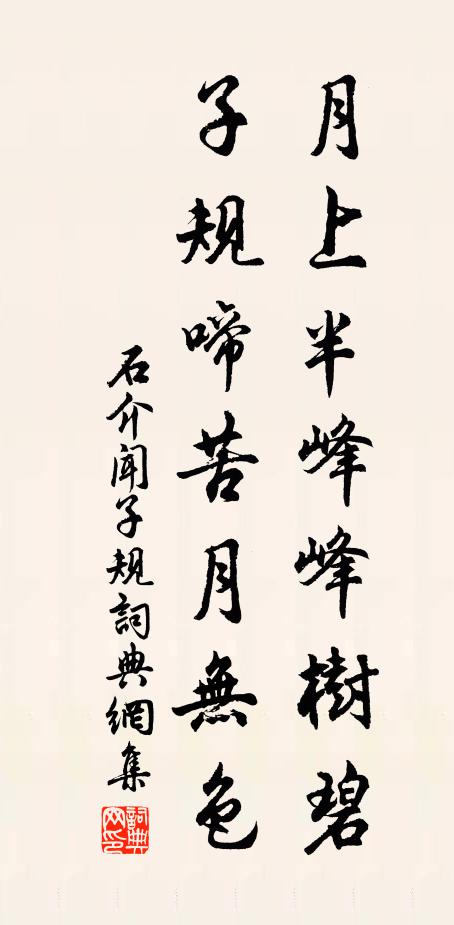 月上半峰峰樹碧
子規啼苦月無色
石介聞子規詞典網集
詞典網印